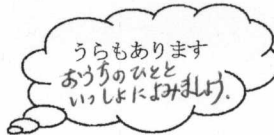 うらもあります
おうちのひとと
いっしょによみましょう.